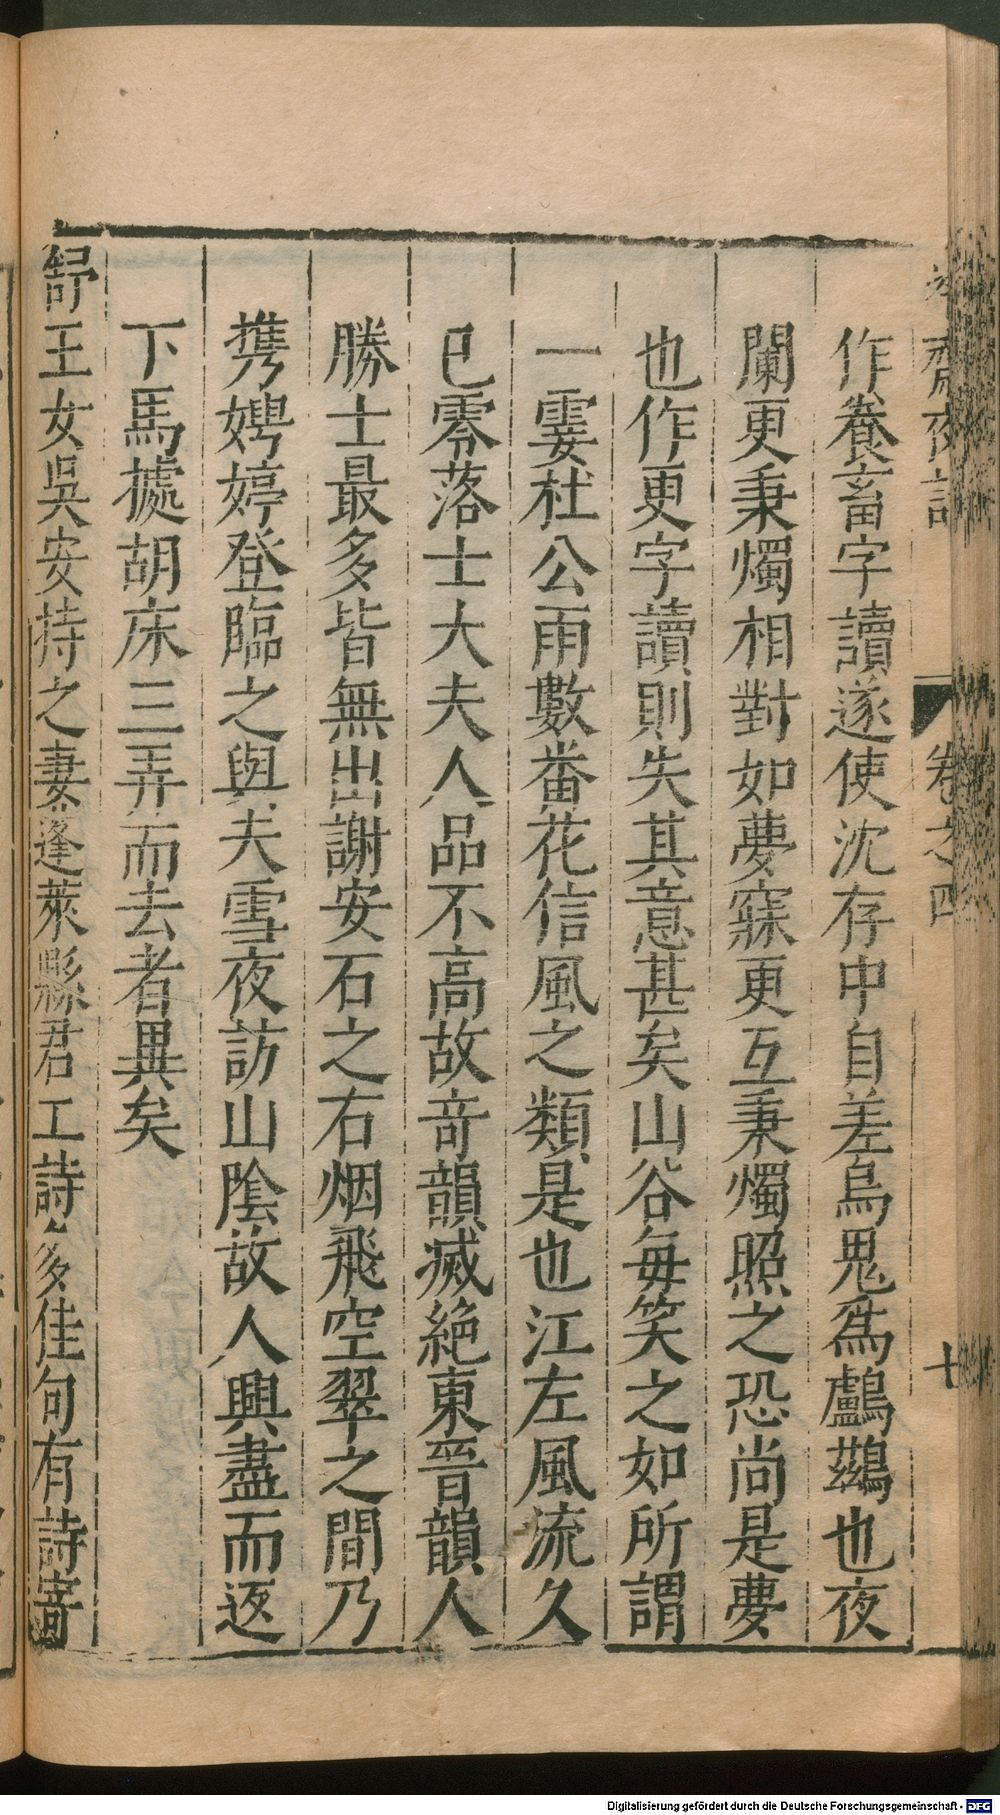 齋夜話
卷之四
十
作養畜字讀遂使沈存中自差烏鬼爲鸕鷀也夜
闌更秉燭相對如夢寐更互秉燭照之恐尚是夢
也作更字讀則失其意甚矣山谷每笑之如所謂
一霎杜公雨數番花信風之類是也江左風流久
已零落士大夫人品不高故竒韻滅絶東晉韻人
勝士最多皆無出謝安石之右烟飛空翠之間乃
携娉婷登臨之與夫雪夜訪山隂故人興盡而返
下馬據胡床三弄而去者異矣
舒王女吳安持之妻蓬萊縣君工詩多佳句有詩寄
Digitalisierung gefördert durch die Deutsche Forschungsgemeinschaft - DFG